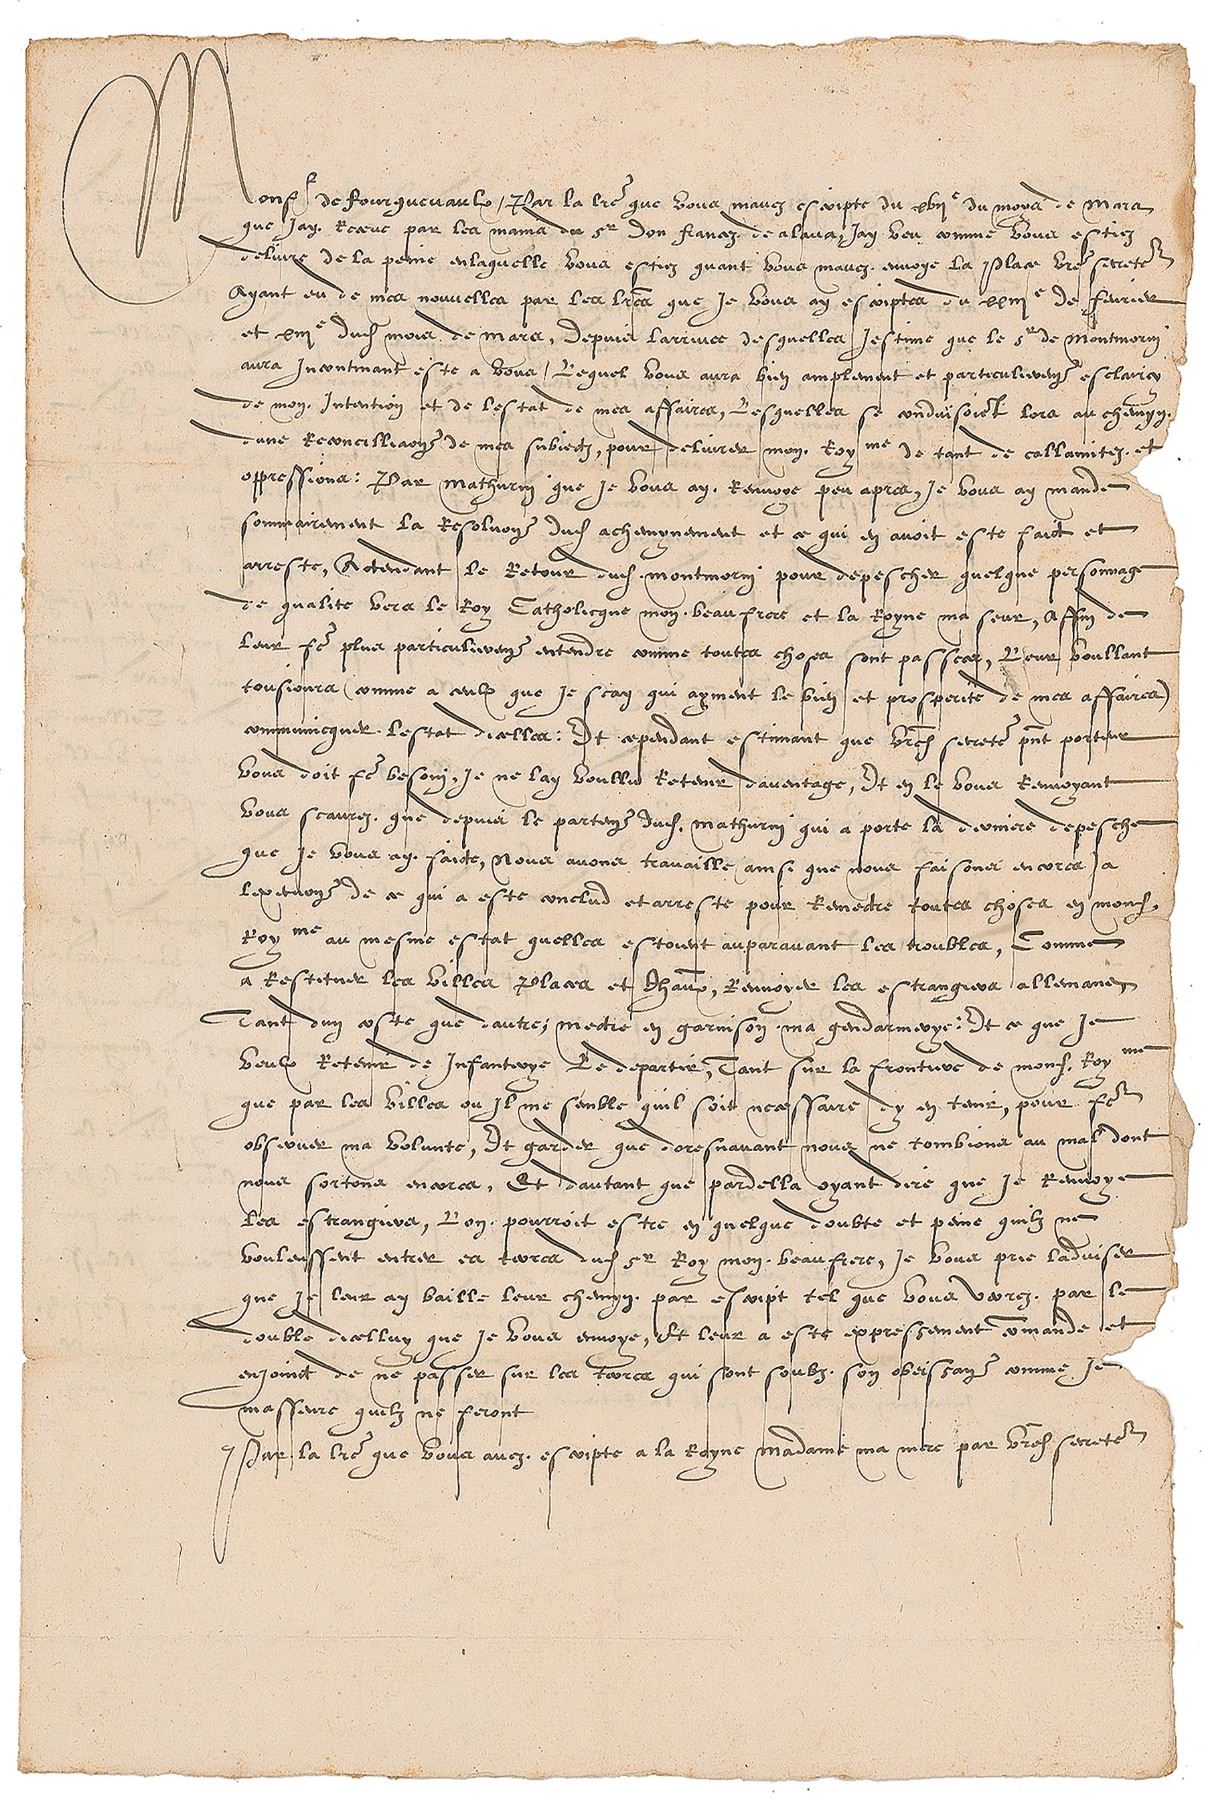 Monsr de Fourquevaulx, Par la lre que vous mavez escripte du xviije du moys de mars
que Jay Receue par les mains du sr don frances de alava, Jay veu comme vous estiez
delivre de la peine en laquelle vous estiez quant vous mavez envoye La Place vre secretre
Ayant eu de mes nouvelles par les lres que Je vous ay escriptes du de fevrier
et dud mois de mars, Depuis larrivee desquelles Jestime que le sr de Montmorin
aura Incontinant este a vous, Lequel vous aura bien amplement et particulierement esclaircy
de mon Intention et de lestat de mes affaires, Lesquelles se conduisoient lors au chemyn
dune Reconciliaon de mes subiectz, pour delivrer mon Royme de tant de callamitez et
oppressions: Par Mathurin que Je vous ay Renvoye peu apres, Je vous ay mande
sommairement la Resoluon dud acheminement et ce qui en avoit este faict et
arreste, Actendant le Retour dud montmorin pour depescher quelque personnage
de qualite vers le Roy Catholicque mon beaufrere et la Royne ma seur, Affin de
leur fe plus particulierement entendre comme toutes choses sont passees, Leur voullant
tousiours (comme a ceulx que Je scay qui ayment le bien et prosperite de mes affaires)
communicquer lestat dicelles: Et cependant estimant que vred secretre pnt porteur
vous doit fe besoin, Je ne lay voullu Retenir davantage, Et en le vous Renvoyant
vous scaurez que depuis le partement dud Mathurin qui a porte la derniere depesche
que Je vous ay faicte, Nous avons travaille ainsi que nous faisons encores a
lexecuon de ce qui a este conclud et arreste pour Remectre toutes choses en mond
Royme au mesme estat quelles estoient auparavant les troubles, Comme
a Restituer les villes Places et chaux, Renvoyer les estrangiers allemans
Tant dun coste que dautre, mectre en garnison ma gendarmerye: Et ce que Je
veulx Retenir de Infanterye Le departir, Tant sur la frontiere de mond Royme
que par les villes ou Il me semble quil soit necessaire dy en tenir, pour fe
observer ma volunte, Et garder que doresnavant nous ne tombions au mal dont
nous sortons encores, Et dautant que pardella oyant dire que Je Renvoye
les estrangiers, Lon pourroit estre en quelque doubte et peine quilz ne
voulussent entrer es terres dud sr Roy mon beaufrere, Je vous prie ladviser
que Je leur ay baille leur chemyn par escript tel que vous verrez par le
double dicelluy que Je vous envoye, Et leur a este expressement comande et
enjoinct de ne passer sur les terres qui sont soubz son obeissance comme Je
masseure quilz ne feront
Par la lre que vous avez escripte a la Royne Madame ma mere par vred secretre